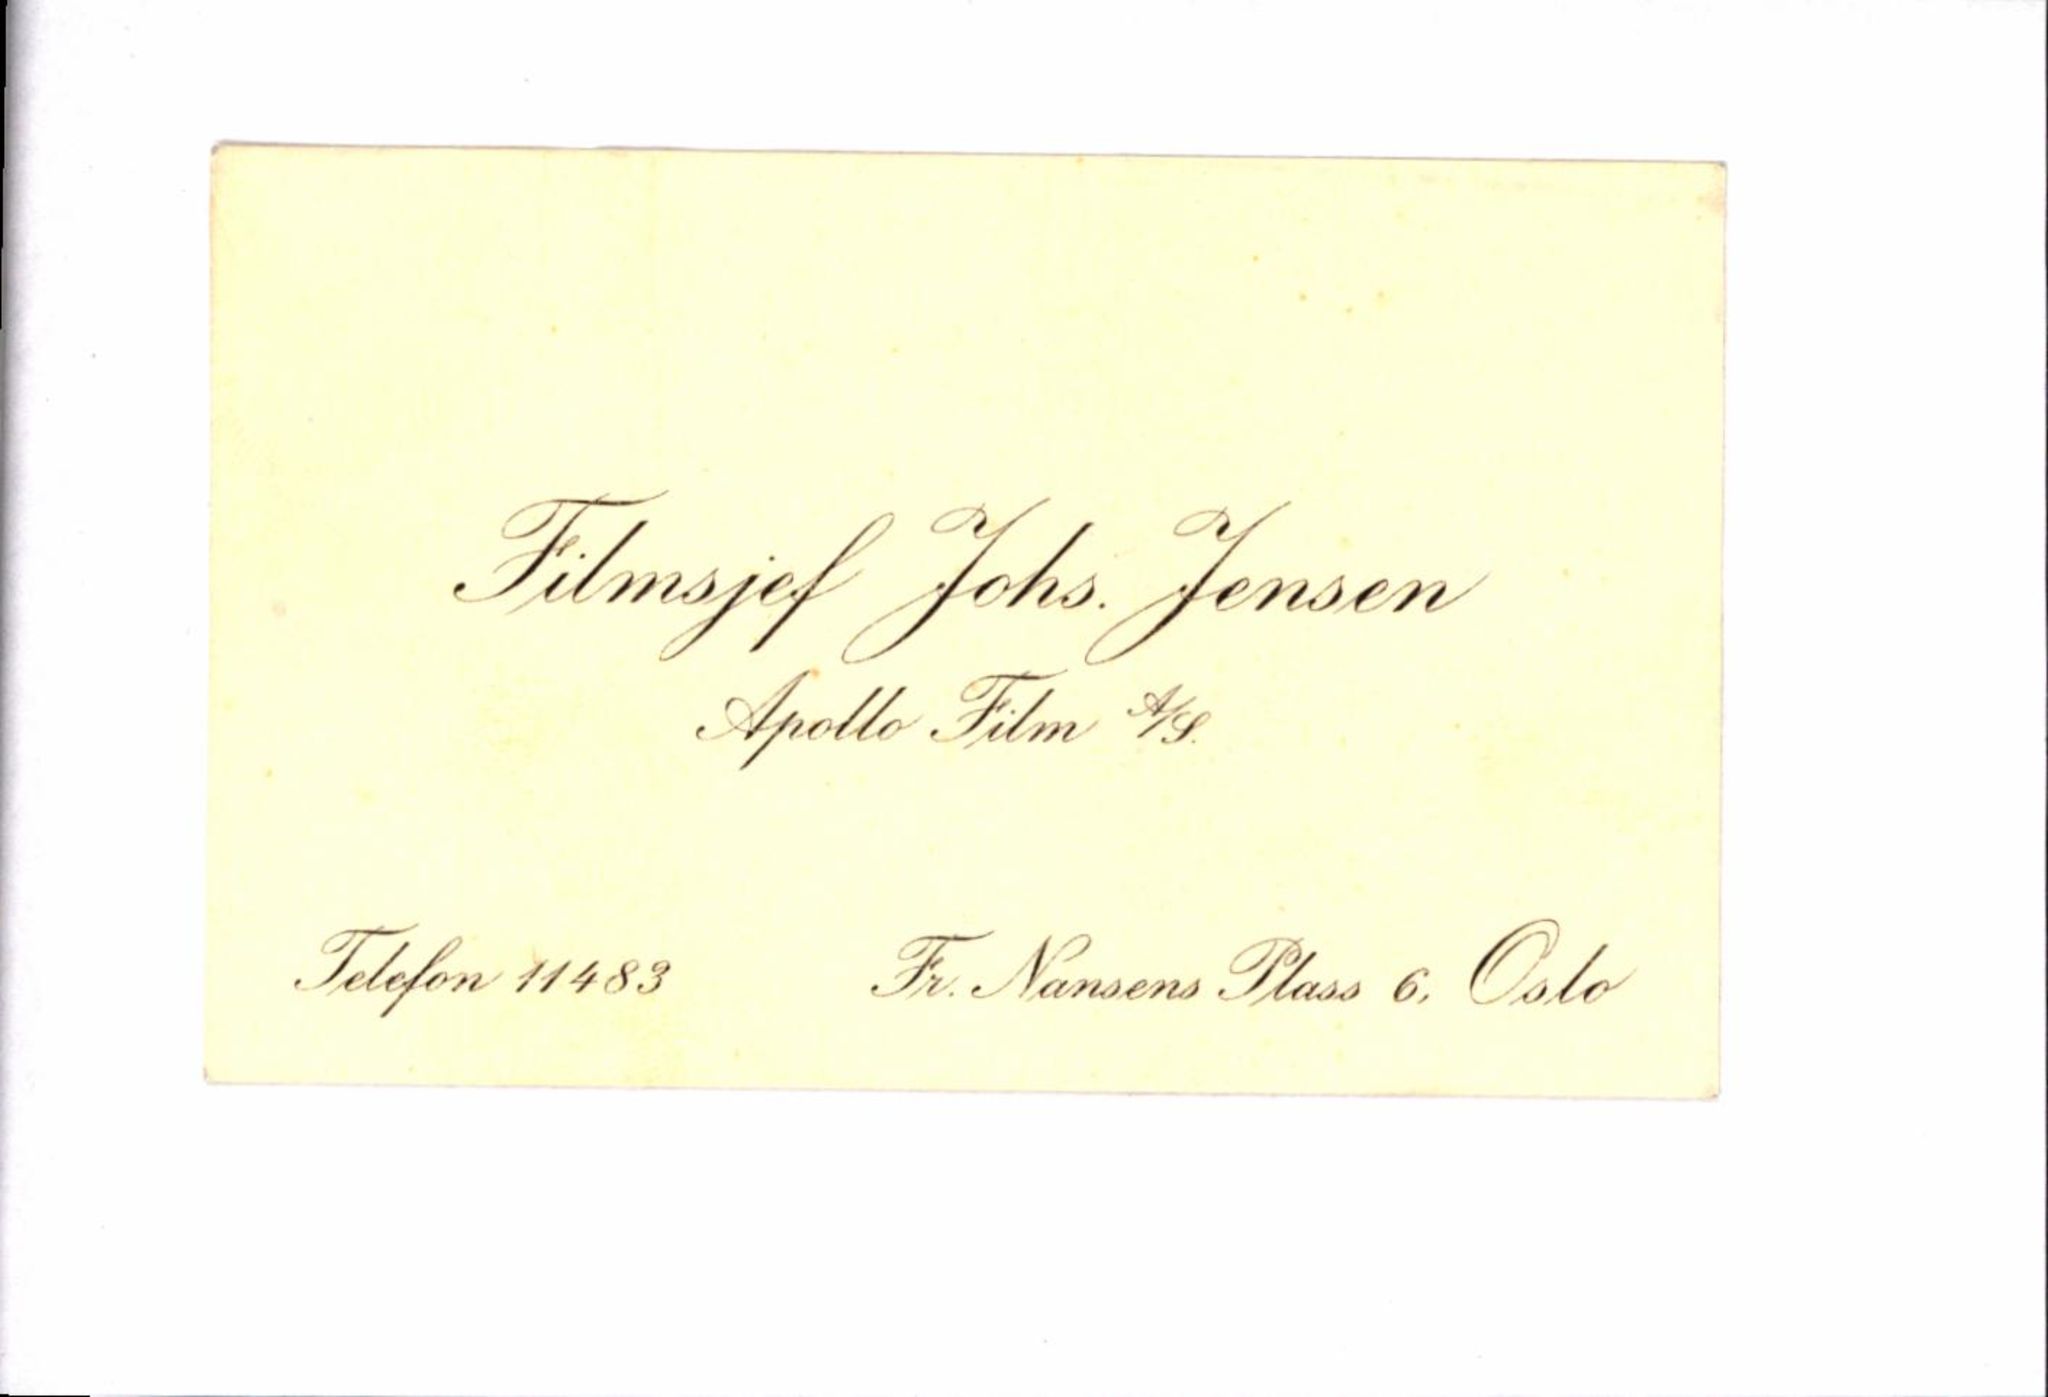 Filmsjef Johs. Jensen
Apollo Film A/S.
Telefon 11483
Fr. Nansens Plass 6, Oslo